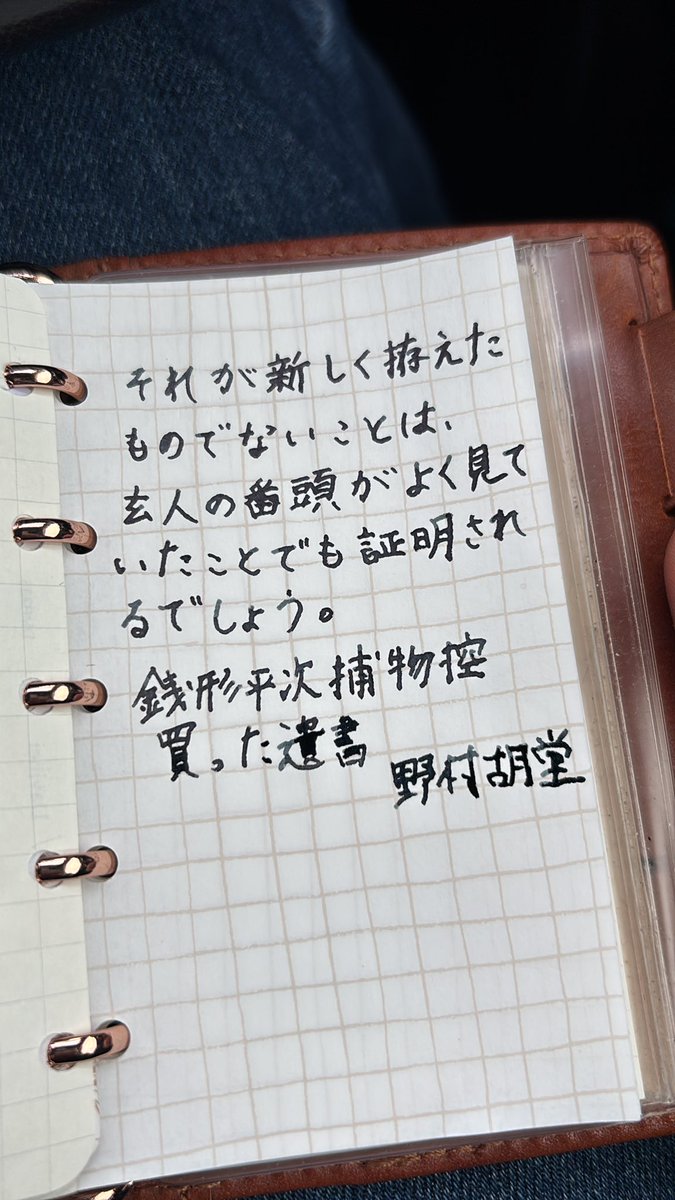 それが新しく拵えた
ものでないことは、
玄人の番頭がよく見て
いたことでも証明され
るでしょう。
銭形平次捕物控
買った遺書
野村胡堂